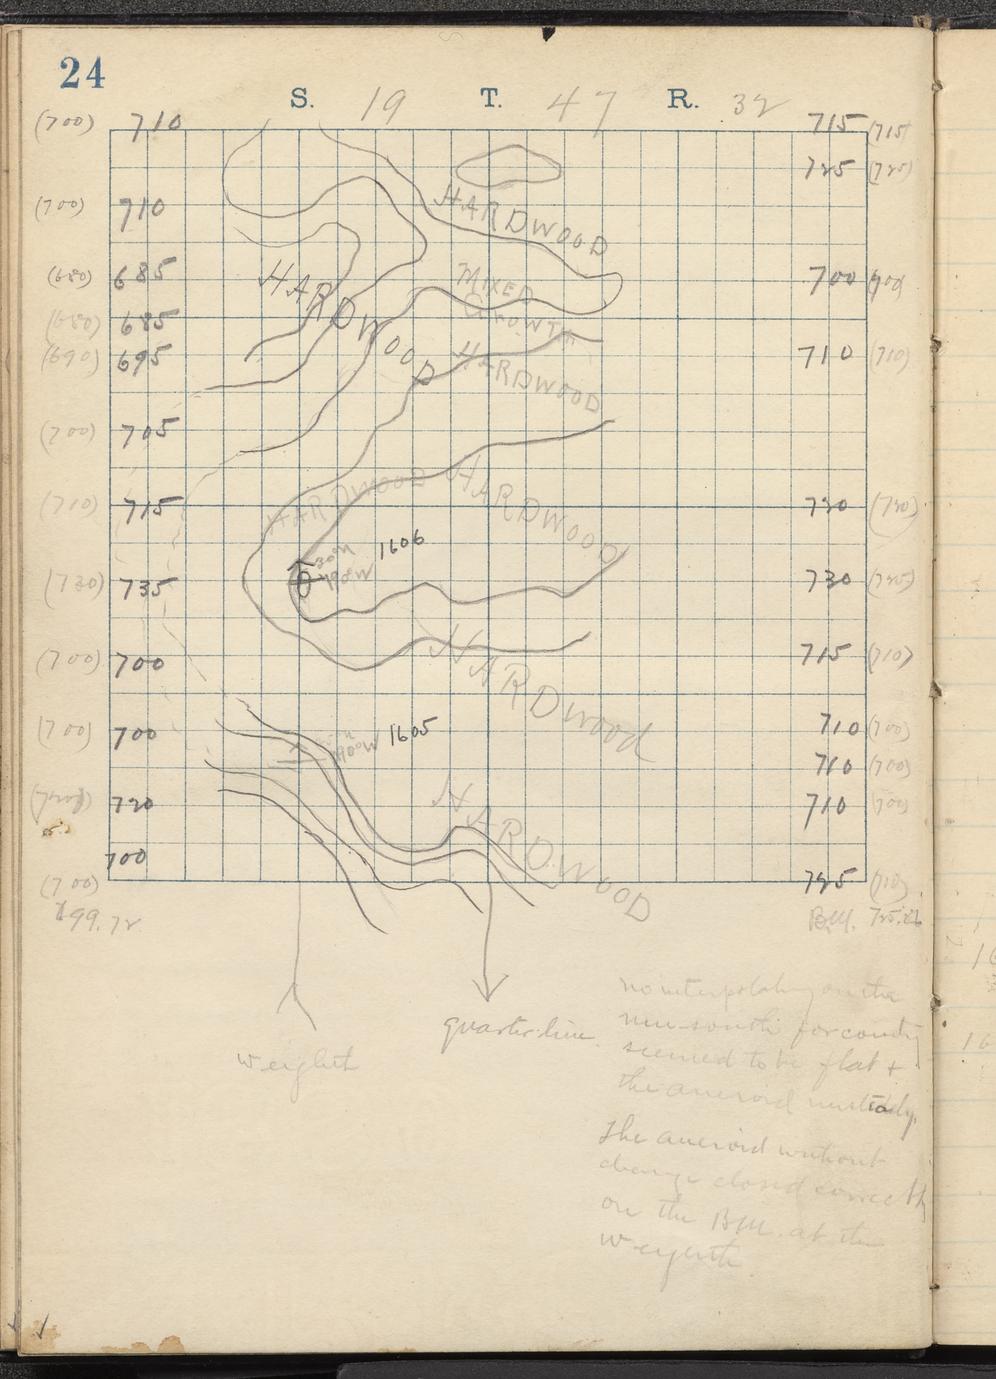 24
S. 19 T. 47 R. 32
(700) 710 715 (715)
725 (725)
HARDWOOD
(700) 710
(680) 685 HARDWOOD MIXED GROWTH 700 (700)
(680) 685
(690) 695 HARDWOOD 710 (710)
(700) 705
HARDWOOD HARDWOOD
(710) 715 720 (720)
1606
30°N
190°W
(730) 735 730 (725)
(700) 700 HARDWOOD 715 (710)
(700) 700 1605 710 (700)
1900W
710 (700)
720 HARDWOOD 710 (700)
700
(700) 725 (710)
699.72 B.M.
weighth quarter line.
no interpolating on the
run south for country
seemed to be flat +
the aneroid unsteady.
The aneroid without
change closed correctly
on the BM. at the
weighth